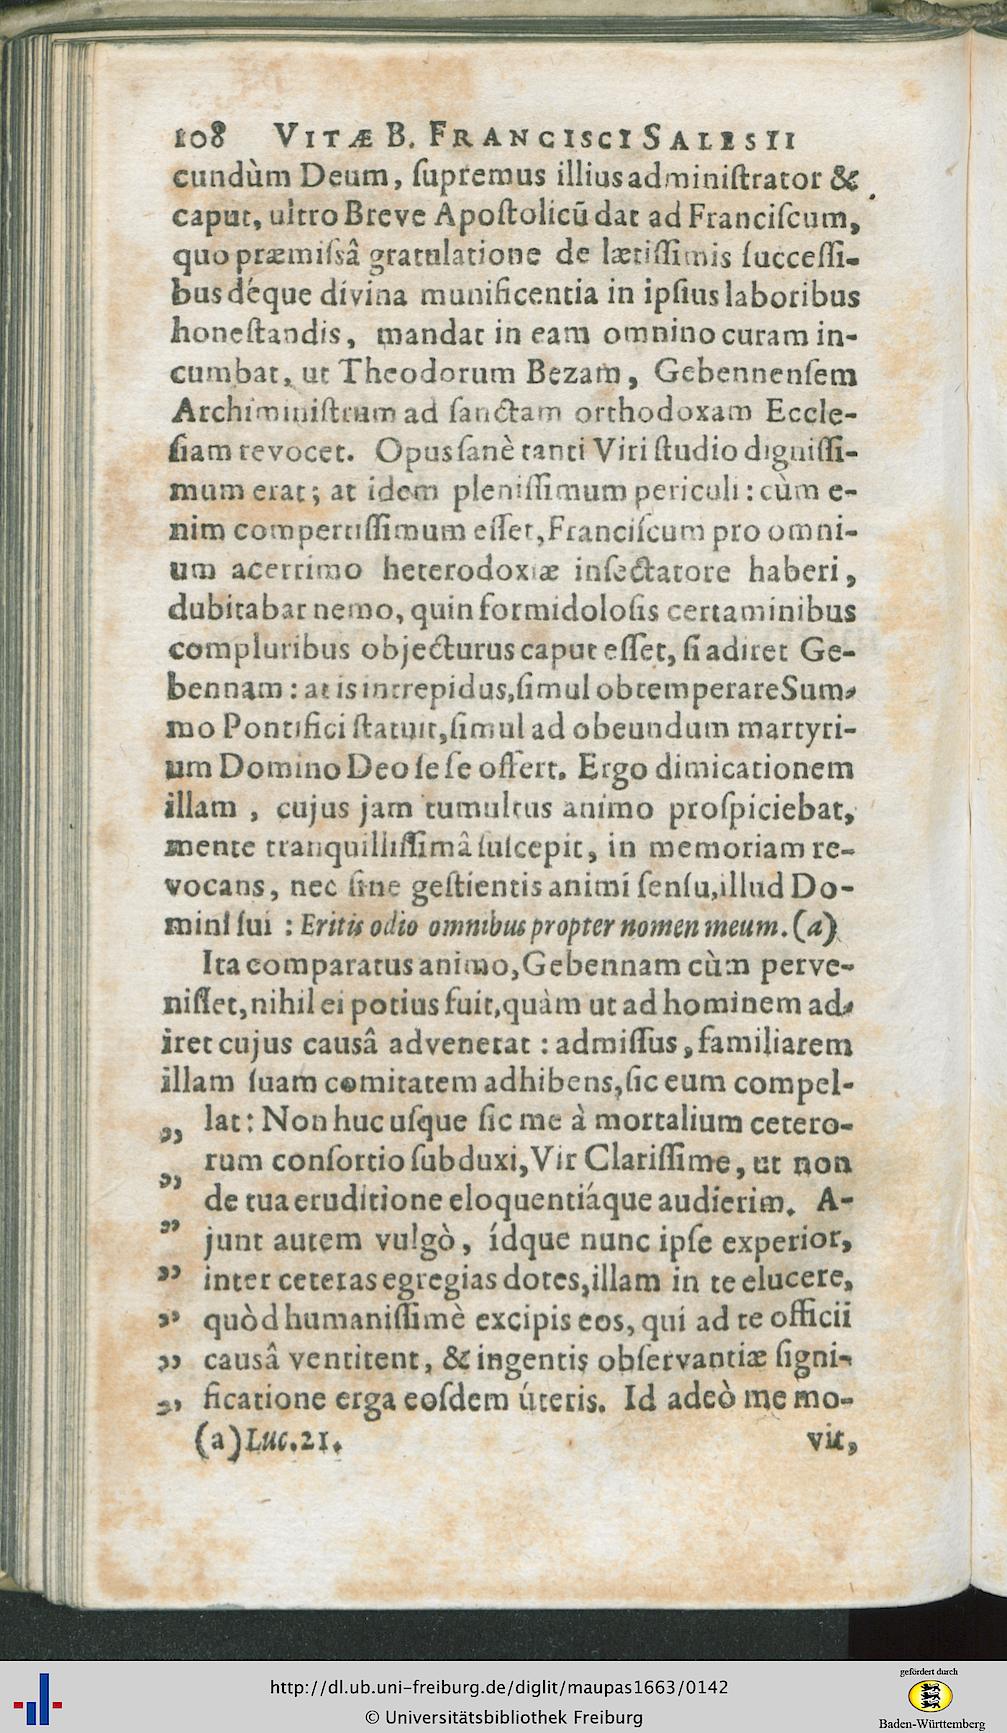 108 VITÆ B. FRANCISCI SALESII
cundùm Deum, ſupremus illius adminiſtrator &
caput, ultro Breve Apoſtolicũ dat ad Franciſcum,
quo præmiſsâ gratulatione de lætiſſimis ſucceſſi-
bus déque divina munificentia in ipſius laboribus
honeſtandis, mandat in eam omnino curam in-
cumbat, ut Theodorum Bezam, Gebennenſem
Archiminiſtrum ad ſanctam orthodoxam Eccle-
ſiam revocet. Opus ſanè tanti Viri ſtudio digniſſi-
mum erat; at idem pleniſſimum periculi: cùm e-
nim compertiſſimum eſſet, Franciſcum pro omni-
um acerrimo heterodoxiæ inſectatore haberi,
dubitabat nemo, quin formidoloſis certaminibus
compluribus objecturus caput eſſet, ſi adiret Ge-
bennam: at is intrepidus, ſimul obtemperare Sum-
mo Pontifici ſtatuit, ſimul ad obeundum martyri-
um Domino Deo ſe ſe offert. Ergo dimicationem
illam, cujus jam tumultus animo proſpiciebat,
mente tranquilliſſimâ ſuſcepit, in memoriam re-
vocans, nec ſine geſtientis animi ſenſu, illud Do-
mini ſui : Eritis odio omnibus propter nomen meum. (a)
Ita comparatus animo, Gebennam cùm perve-
niſſet, nihil ei potius fuit, quàm ut ad hominem ad-
iret cujus causâ advenerat : admiſſus, familiarem
illam ſuam comitatem adhibens, ſic eum compel-
lat: Non huc uſque ſic me à mortalium cetero-
„ rum conſortio ſubduxi, Vir Clariſſime, ut non
„ de tua eruditione eloquentiáque audierim. A-
„ junt autem vulgò, ídque nunc ipſe experior,
„ inter ceteras egregias dotes, illam in te elucere,
„ quòd humaniſſimè excipis eos, qui ad te officii
„ causâ ventitent, & ingentis obſervantiæ ſigni-
„ ficatione erga eoſdem úteris. Id adeò me mo-
(a) Luc. 21. vit,
http://dl.ub.uni-freiburg.de/diglit/maupas1663/0142
© Universitätsbibliothek Freiburg
gefördert durch
Baden-Württemberg